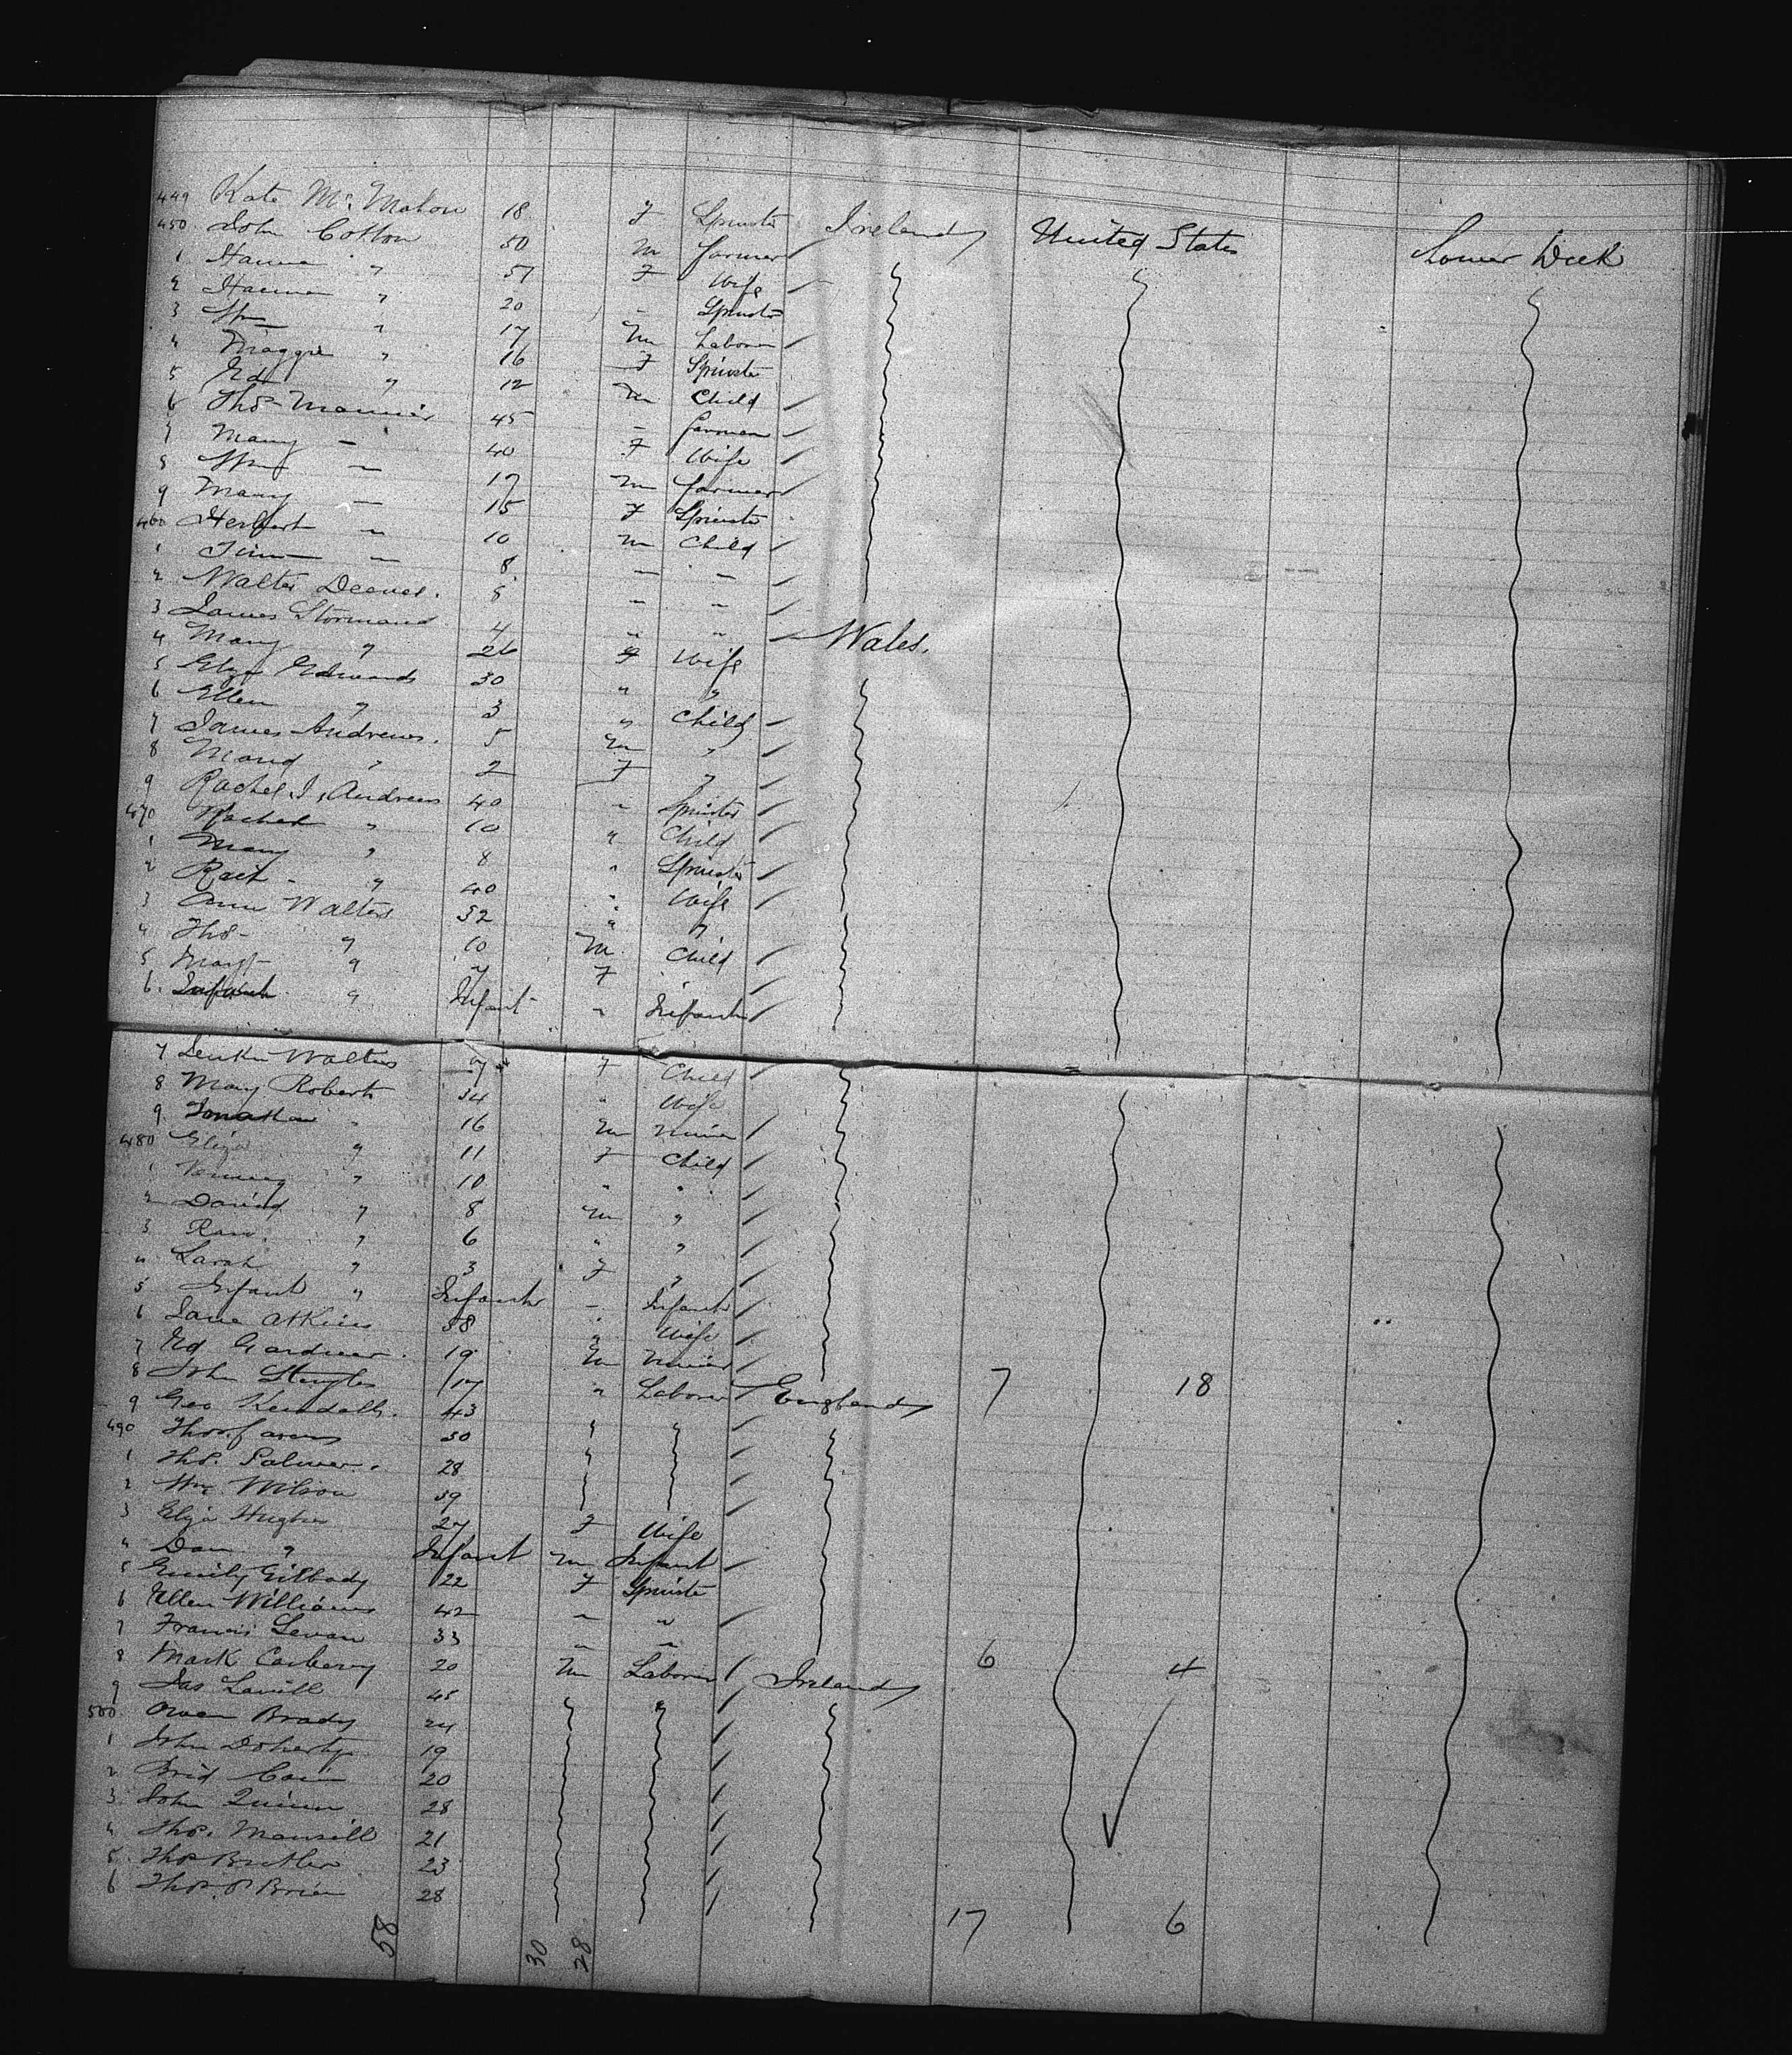 449 Kate Mc Mahon 18 F Spinster Ireland United States Lower Deck
450 John Cotton 50 M farmer
1 Hanna " 51 F Wife
2 Hanna " 20 - Spinster
3 Wm " 17 M Laborer
4 Maggie " 16 F Spinster
5 Ed " 12 M Child
6 Thos Mannier 45 - farmer
7 Mary - 40 F Wife
8 Wm - 17 M farmer
9 Mary - 15 F Spinster
460 Herbert - 10 M Child
1 Jim - 8 - -
2 Walter 8 - -
3 James Stormand 4 " " Wales.
4 Mary " 26 F Wife
5 Eliza Edwards 30 " "
6 Ellen " 3 " Child
7 James Andrews. 5 M "
8 Maud " 2 F "
9 Rachel J. Andrews 40 " Spinster
470 Rachel " 10 " Child
1 Mary " 8 " Spinster
2 " 40 " Wife
3 Ann Walters 32 " "
4 Thos - " 10 M Child
5 Mary - " F
6. Infant " Infant " Infant
7 Walters 7 F Child
8 Mary Roberts 34 " Wife
9 Jonathan " 16 M Miner
480 Eliza " 11 F Child
1 " 10 " "
2 David " 8 M "
3 " 6 " "
4 Sarah " 3 F "
5 Infant " Infant - Infant
6 Jane Atkins 38 " Wife
7 Ed Gardner. 19 M Miner
8 John 17 " Laborer England 7 18
9 Geo Kendall. 43
490 Thos. 30
1 Thos. Palmer. 28
2 Wm Wilson 39
3 Eliza Hughes 27 F Wife
4 Dan " Infant M Infant
5 Emily Gilbody 22 F Spinster
6 Ellen Williams 42 - "
7 Francis 33 - - 6 4
8 Mark Carberry 20 M Laborer Ireland
9 Jas 45
500 Owen Brady 24
1 John Doherty 19
2 Brid 20
3 John Quinn 28
4 Thos. Mansell 21
5 Thos Butler 23
6 Thos. O Brien 28
17 6
58 30 28